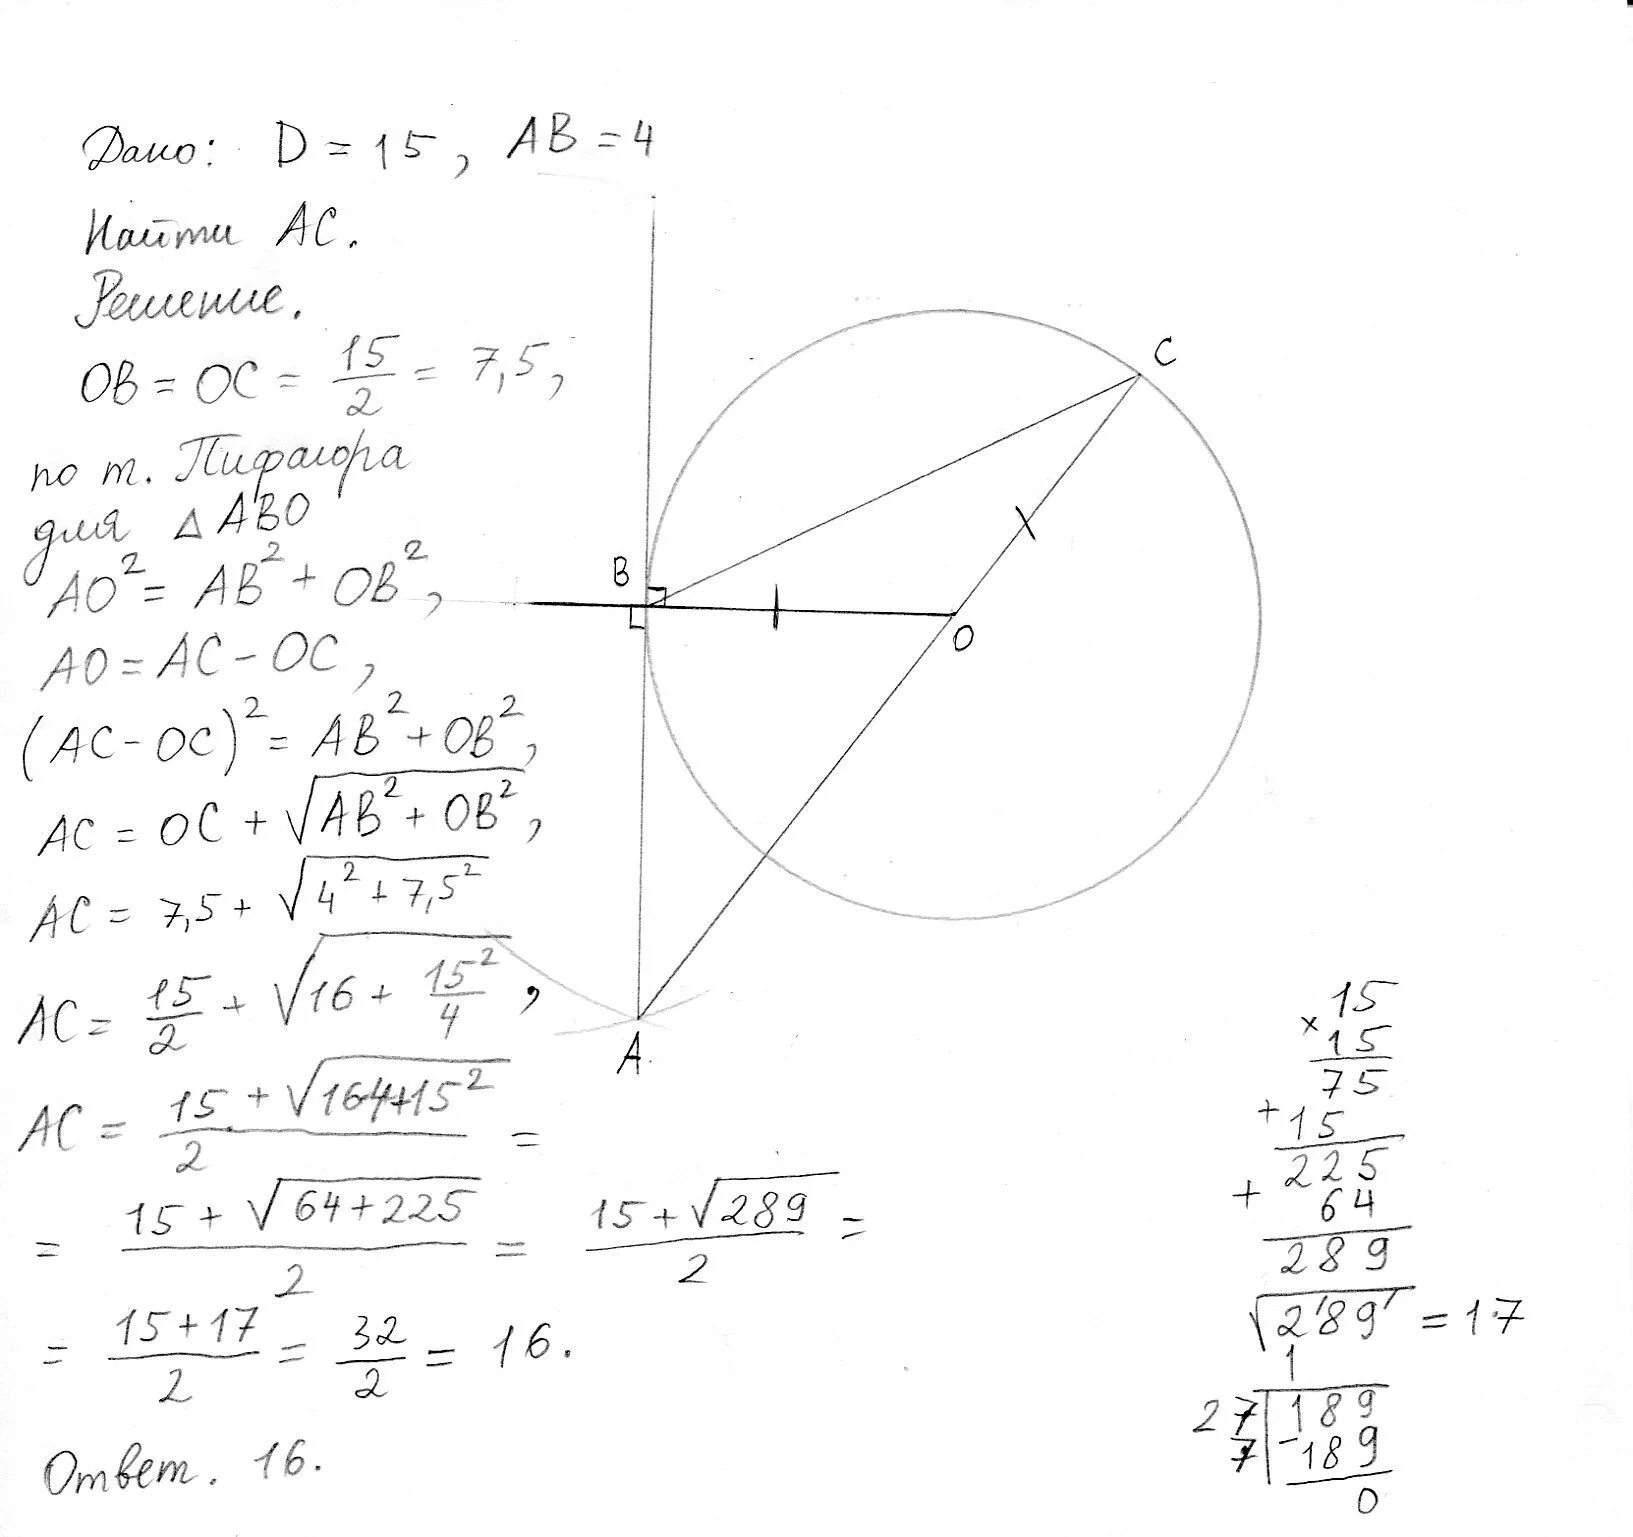 Дано: D = 15, AB = 4
Найти AC.
Решение.
OB = OC = 15/2 = 7,5,
по т. Пифагора
для △ABO
AO² = AB² + OB²,
AO = AC - OC,
(AC - OC)² = AB² + OB²,
AC = OC + √(AB² + OB²),
AC = 7,5 + √(4² + 7,5²)
AC = 15/2 + √(16 + 15²/4),
AC = (15 + √(16·4+15²))/2 =
= (15 + √(64+225))/2 = (15 + √289)/2 =
= (15+17)/2 = 32/2 = 16.
Ответ. 16.
C
B
O
A
15
× 15
75
+ 15
225
+ 64
289
√2'89' = 17
1
27 | 189
7 | -189
0